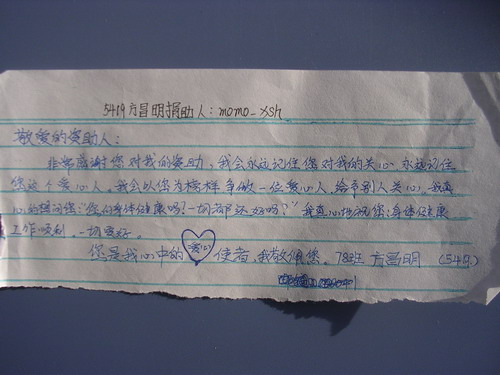 5419方昌明捐助人：momo_xsh
敬爱的资助人：
非常感谢您对我的资助，我会永远记住您对我的关心，永远记住
您这个爱心人。我会以您为榜样争做一位爱心人，给予别人关心。我真
心的想问您："您的身体健康吗？一切都还好吗？"我真心的祝您：身体健康
工作顺利，一切安好。
您是我心中的 爱心 使者，我敬佩您。78班 方昌明 (5419)